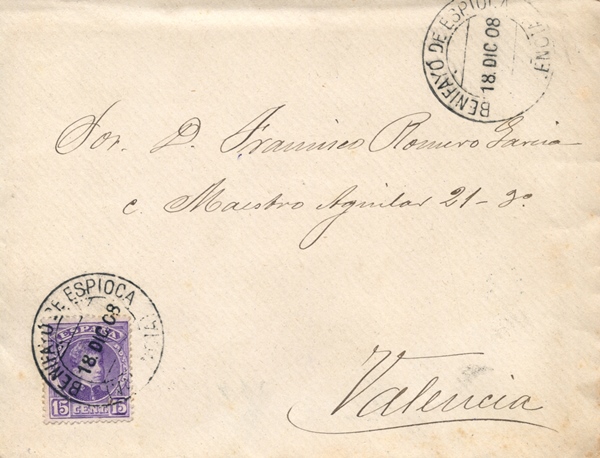 BENIFAYÓ DE ESPIOCA
18.DIC 08
Sor. D. Francisco Romero Garcia
c. Maestro Aguilar 21-3º
BENIFAYÓ DE ESPIOCA
18.DIC 08
ESPAÑA
15 CENT. 15
Valencia